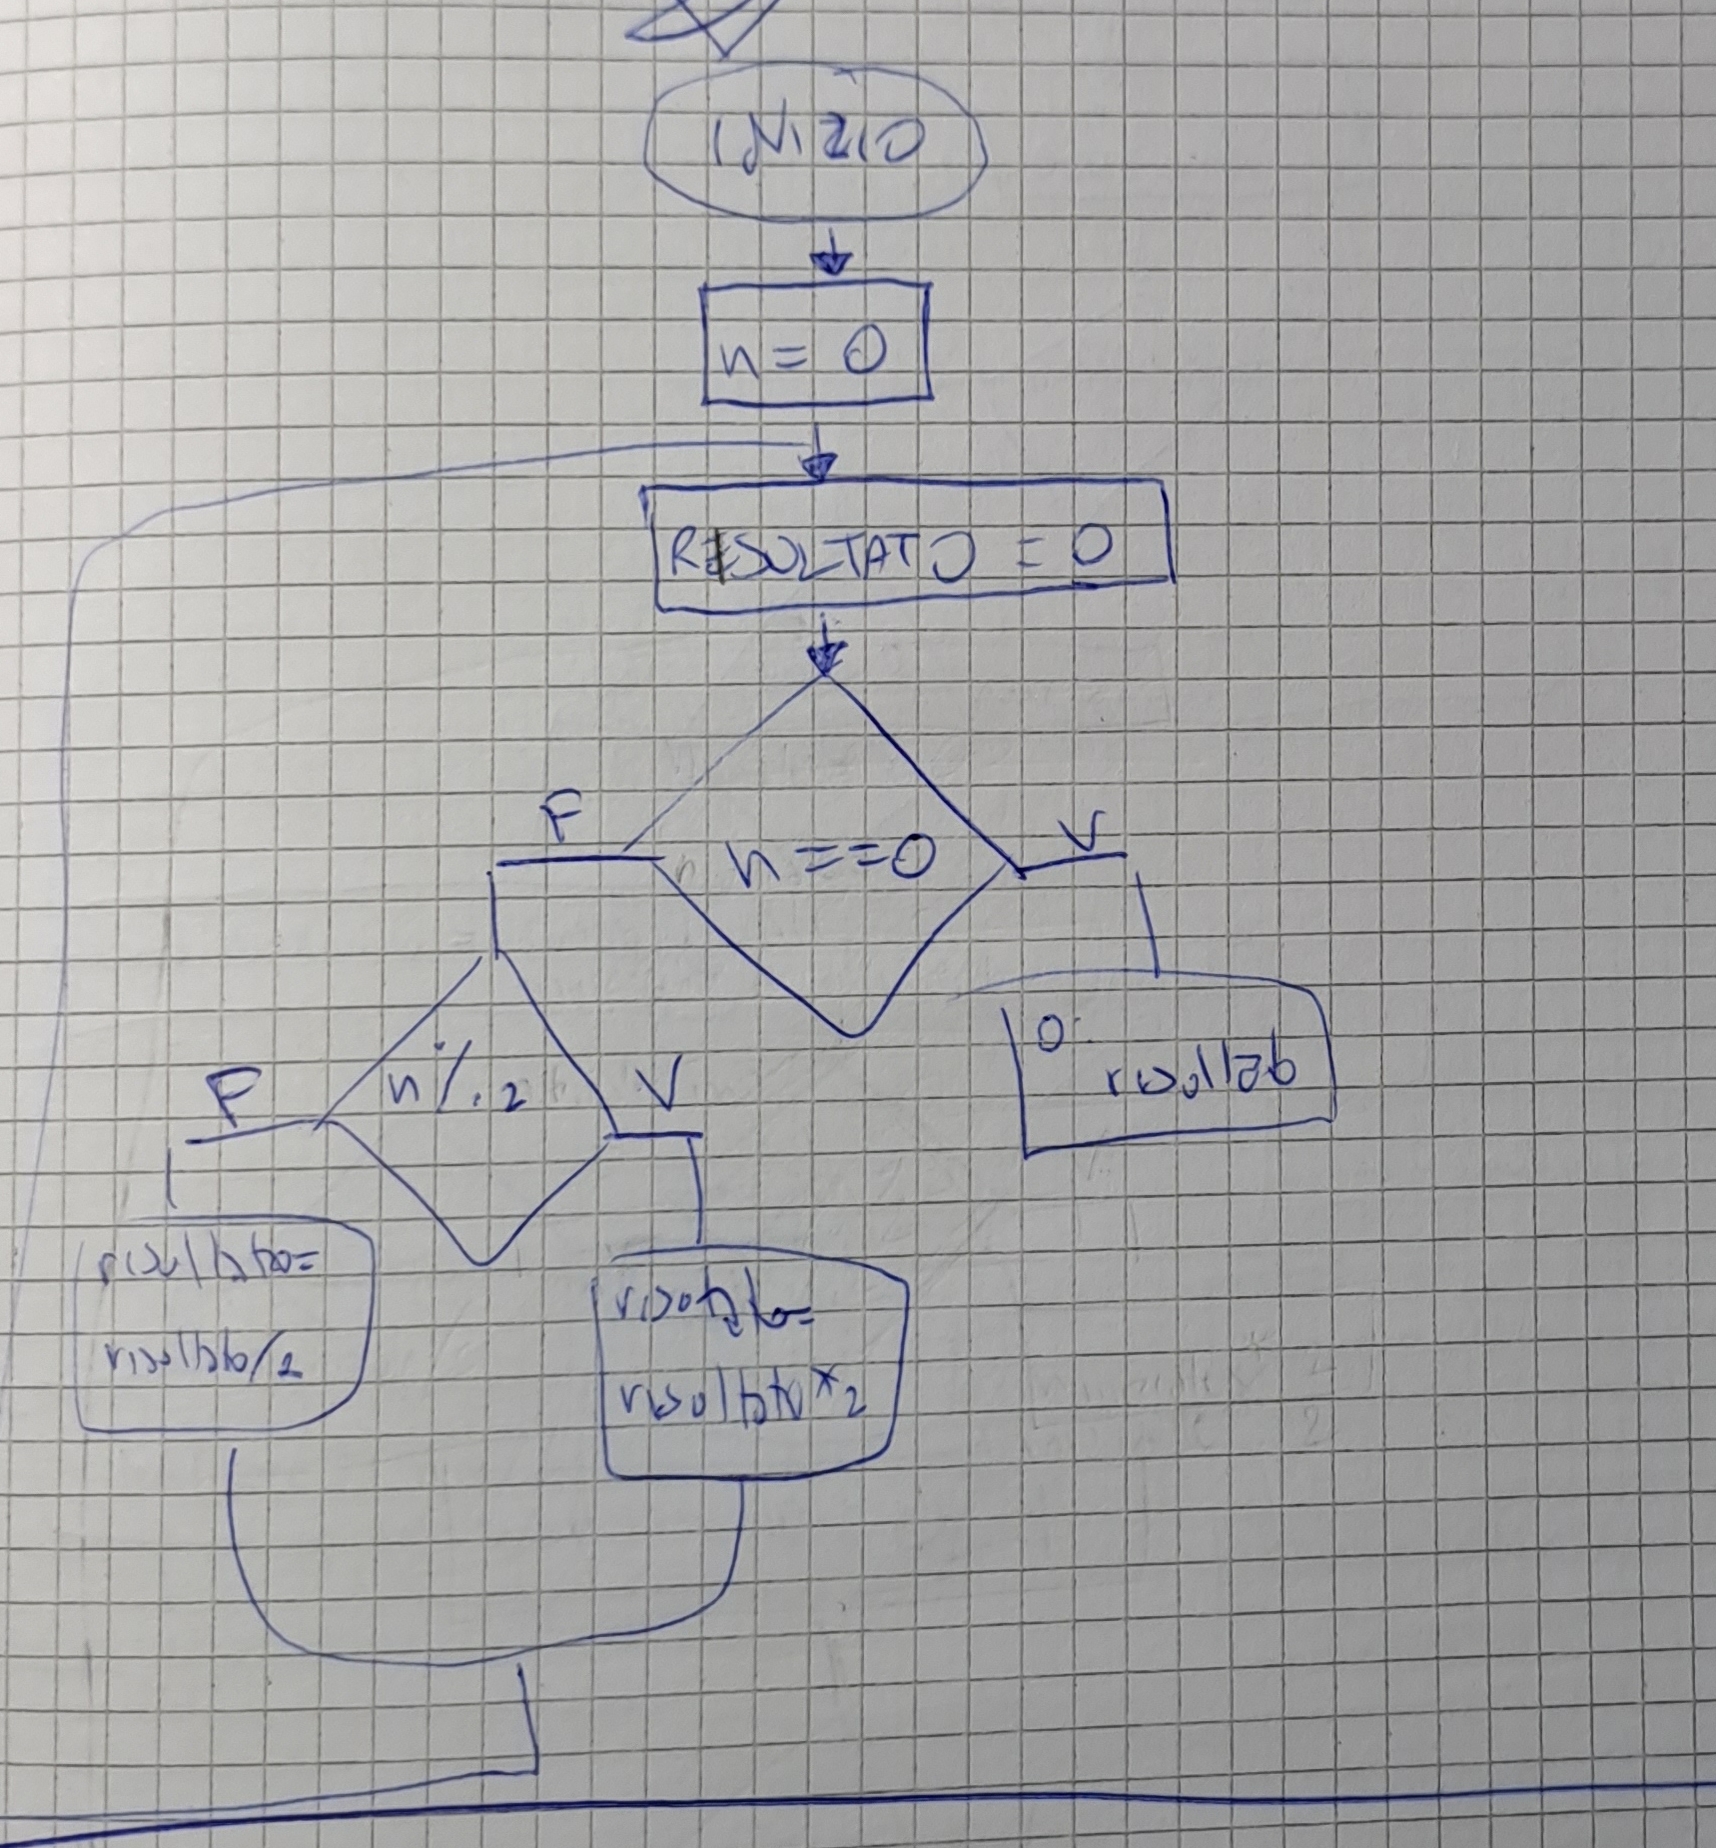 INIZIO
n = 0
RISULTATO = 0
F
n == 0
V
O:
risultato
F
n % 2
V
risultato=
risultato/2
risultato=
risultato*2